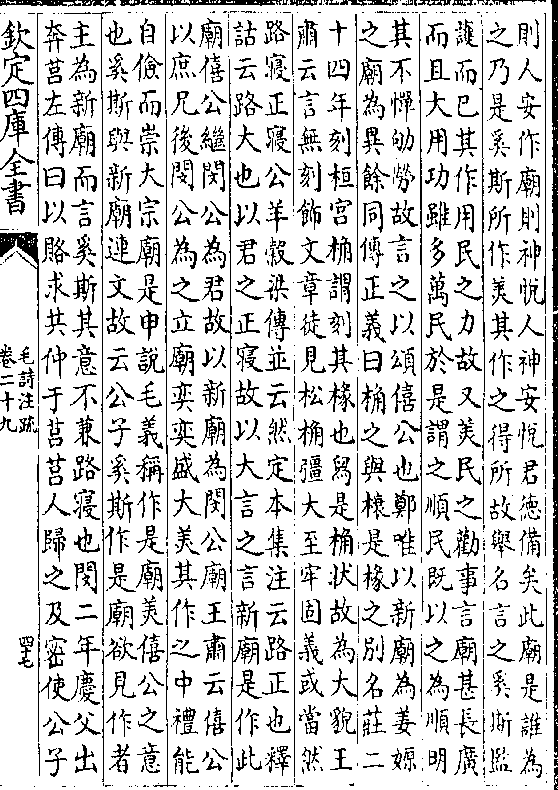 則人安作廟則神悅人神安悅君德備矣此廟是誰為
之乃是奚斯所作美其作之得所故舉名言之奚斯監
護而已其作用民之力故又美民之勸事言廟甚長廣
而且大用功雖多萬民於是謂之順民既以之為順明
其不憚劬勞故言之以頌僖公也鄭唯以新廟為姜嫄
之廟為異餘同傳正義曰桷之與榱是椽之別名莊二
十四年刻桓宮桷謂刻其椽也舄是桷狀故為大貌王
肅云言無刻飾文章徒見松桷彊大至牢固義或當然
路寢正寢公羊穀梁傳並云然定本集注云路正也釋
詁云路大也以君之正寢故以大言之新廟是作此
廟僖公繼閔公為君故以新廟為閔公廟王肅云僖公
以庶兄後閔公為之立廟奕奕盛大美其作之中禮能
自儉而崇大宗廟是申說毛義稱作是廟美僖公之意
也奚斯與新廟連文故云公子奚斯作是廟欲見作者
主為新廟而言奚斯其意不兼路寢也閔二年慶父出
奔莒左傳曰以賂求共仲于莒莒人歸之及密使公子
欽定四庫全書
毛詩注疏
卷二十九
四七